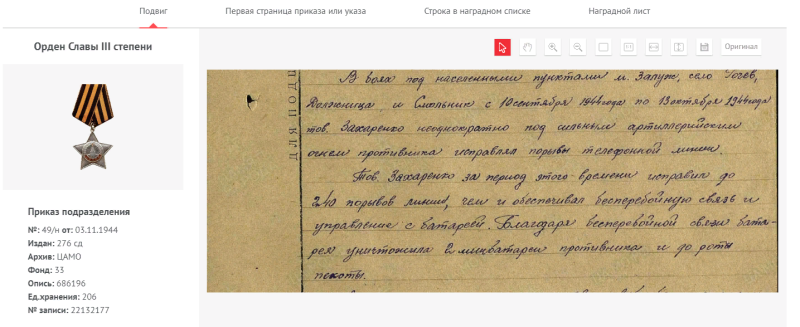 Подвиг
Первая страница приказа или указа
Строка в наградном списке
Наградной лист
Орден Славы III степени
Оригинал
ДЛЯ ПОДШ
В боях под населенными пунктами м. Залуж, село Гочев,
Должница и Смольник с 10 сентября 1944 года по 13 октября 1944 года
тов. Захаренко неоднократно под сильным артиллерийским
огнем противника исправлял порывы телефонной линии.
Тов. Захаренко за период этого времени исправил до
240 порывов линий, чем и обеспечивал бесперебойную связь и
управление с батареей. Благодаря бесперебойной связи бата-
рея уничтожила 2 минбатареи противника и до роты
пехоты.
Приказ подразделения
№: 49/н от: 03.11.1944
Издан: 276 сд
Архив: ЦАМО
Фонд: 33
Опись: 686196
Ед.хранения: 206
№ записи: 22132177